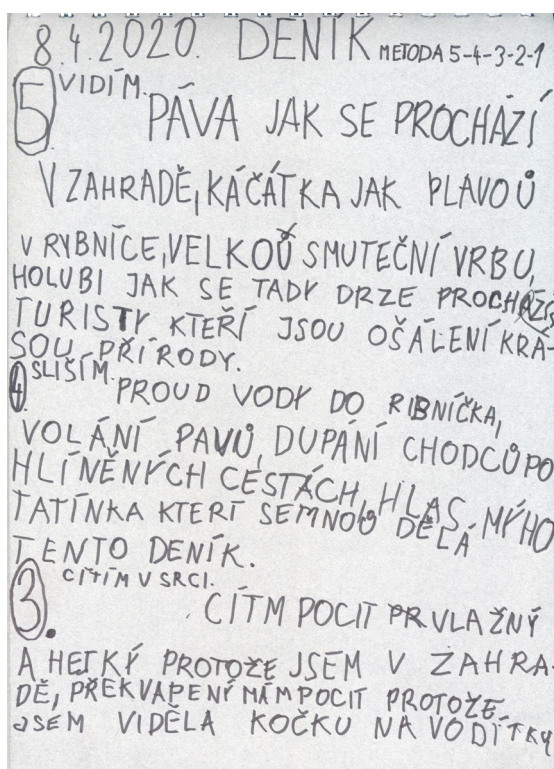 8.4.2020. DENÍK METODA 5-4-3-2-1
5 VIDÍM.
PÁVA JAK SE PROCHÁZÍ
V ZAHRADĚ, KÁČÁTKA JAK PLAVOŮ
V RYBNÍCE, VELKOŮ SMUTEČNÍ VRBU,
HOLUBI JAK SE TADY DRZE PROCHÁZÍ,
TURISTY KTEŘÍ JSOU OŠÁLENÍ KRÁ-
SOU PŘÍRODY.
4. SLIŠÍM.
PROUD VODY DO RIBNÍČKA,
VOLÁNÍ PAVŮ, DUPÁNÍ CHODCŮ PO
HLÍNĚNÝCH CESTÁCH, HLAS MÝHO
TATÍNKA KTERÍ SEMNOŮ DĚLÁ
TENTO DENÍK.
3. CÍTÍM V SRCI.
CÍTM POCIT PRVLAŽNÝ
A HETKÝ PROTOŽE JSEM V ZAHRA-
DĚ, PŘEKVAPENÝ MÁM POCIT PROTOŽE
JSEM VIDĚLA KOČKU NA VODÍTKU